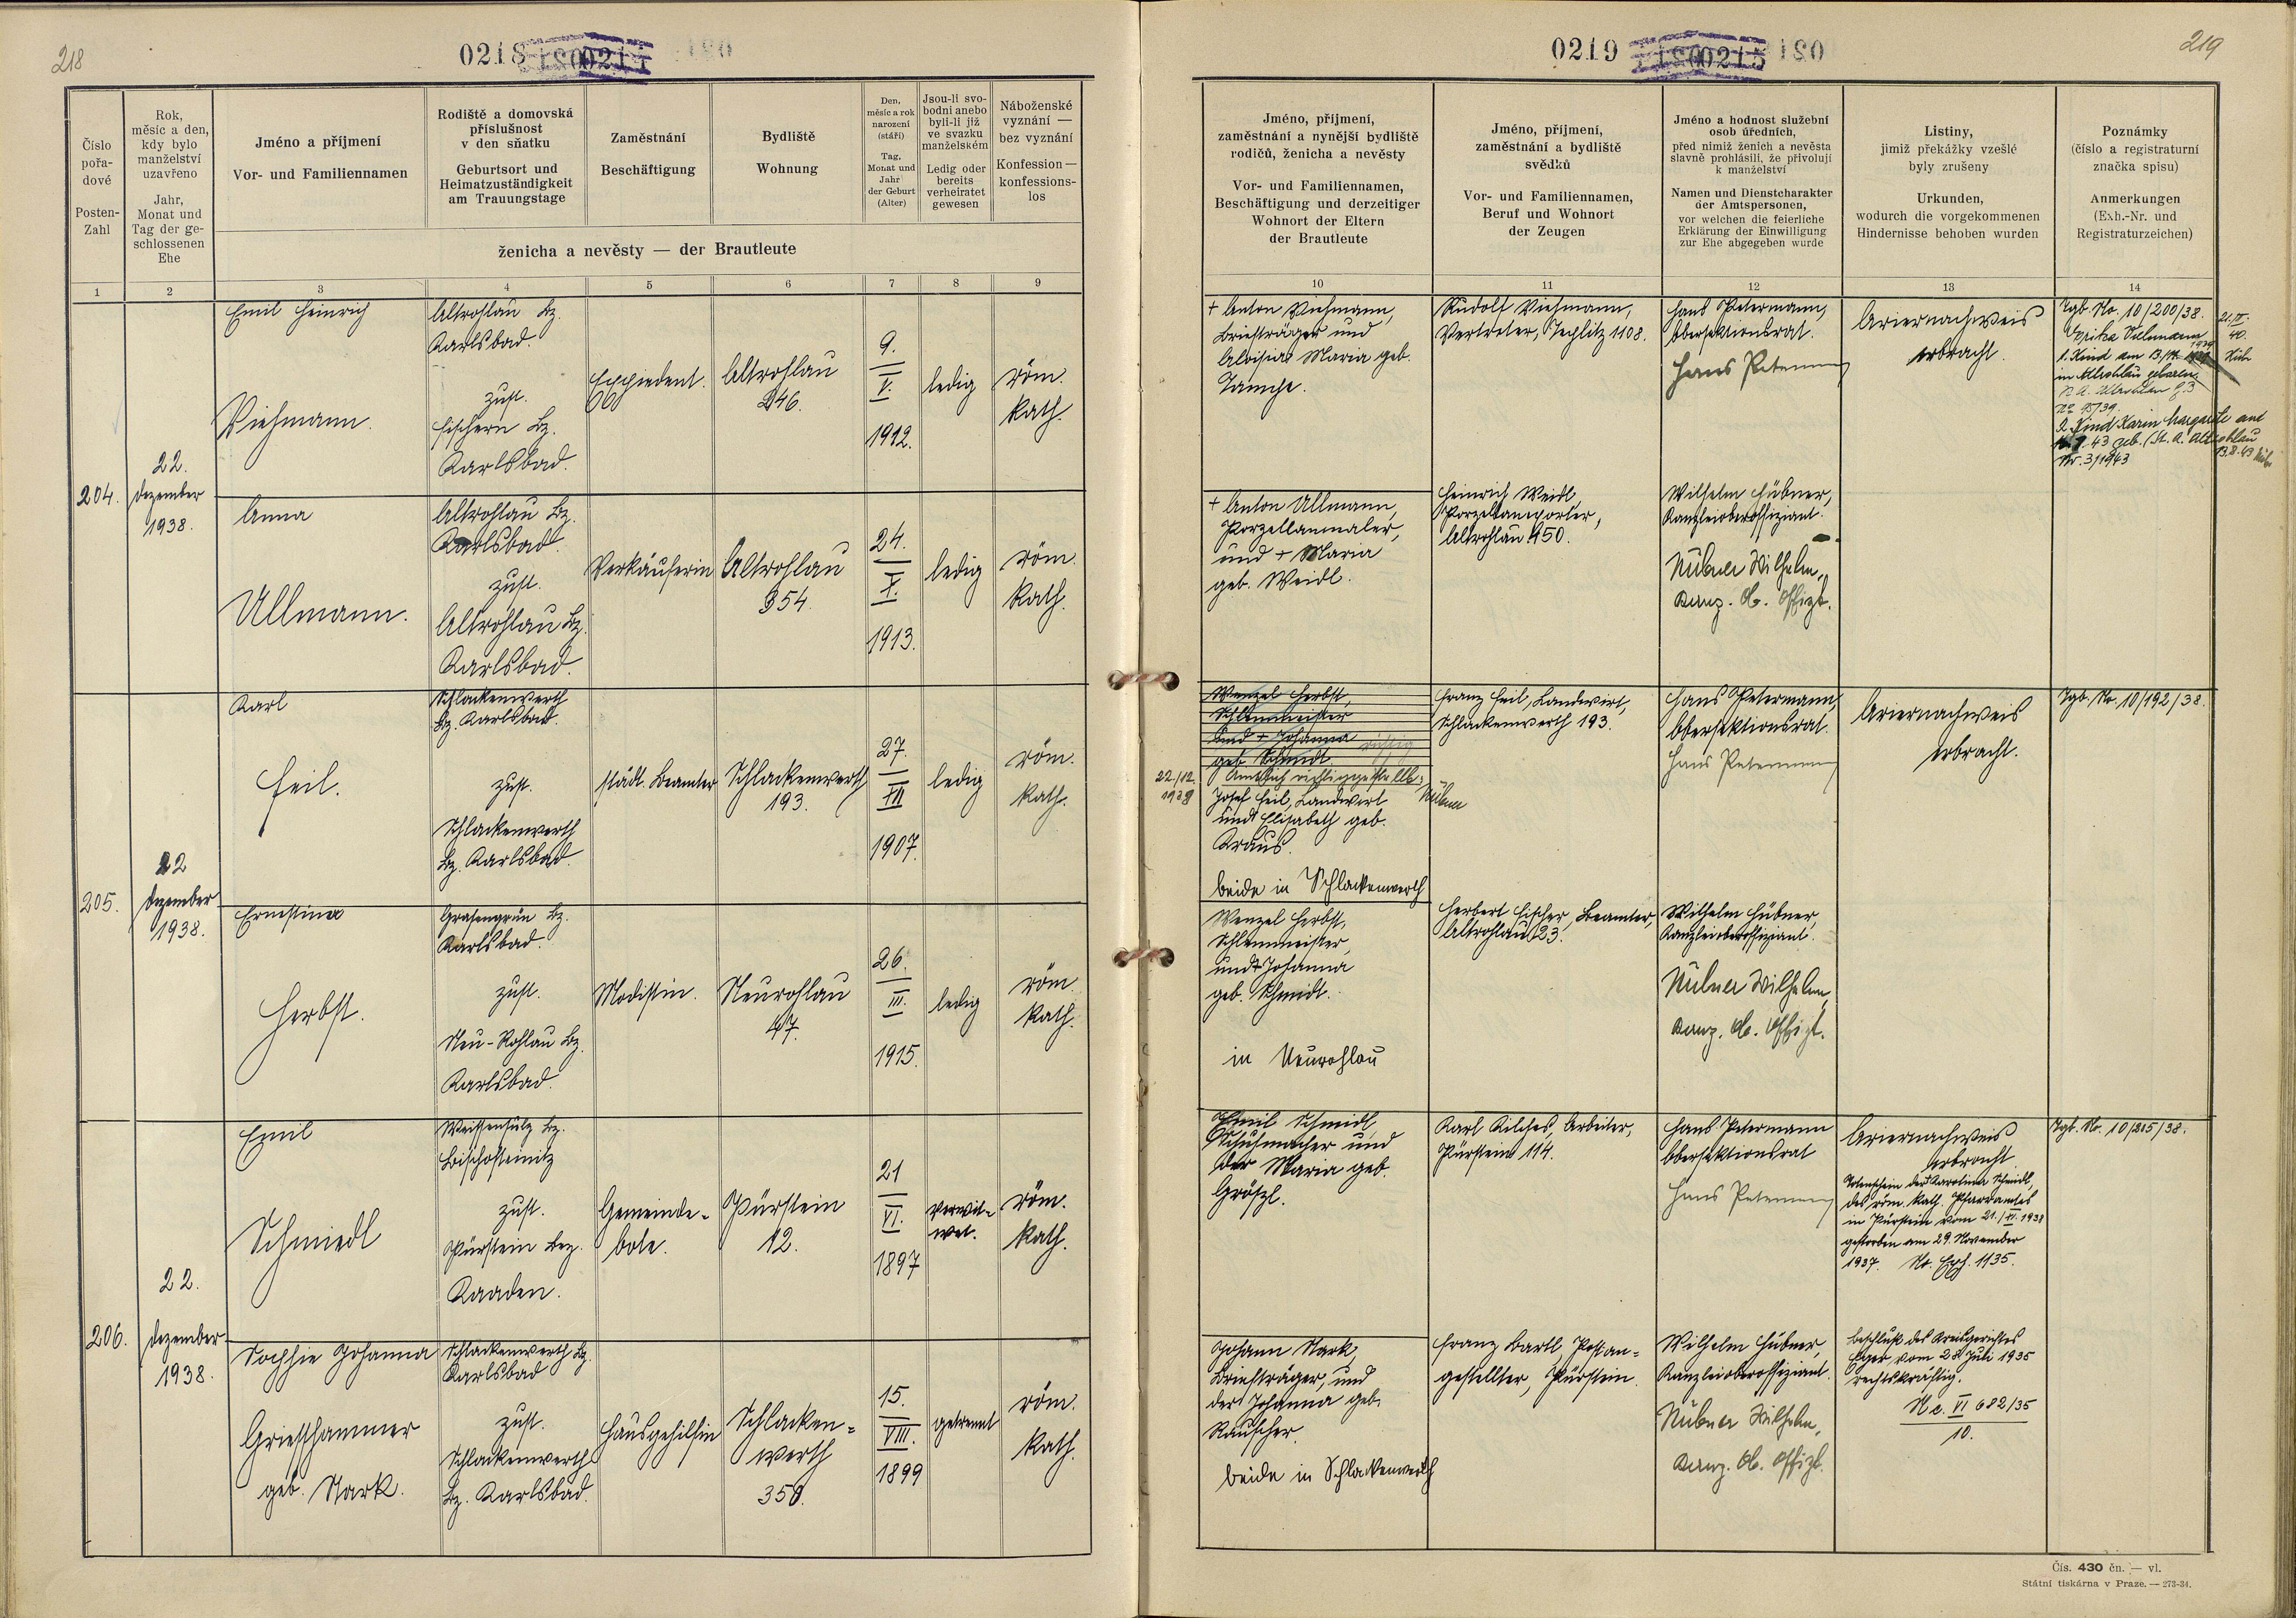 218
0218
Číslo
pořa-
dové
Posten-
Zahl
Rok,
měsíc a den,
kdy bylo
manželství
uzavřeno
Jahr,
Monat und
Tag der ge-
schlossenen
Ehe
Jméno a příjmení
Vor- und Familiennamen
Rodiště a domovská
příslušnost
v den sňatku
Geburtsort und
Heimatzuständigkeit
am Trauungstage
Zaměstnání
Beschäftigung
Bydliště
Wohnung
Den,
měsíc a rok
narození
(stáří)
Tag,
Monat und
Jahr
der Geburt
(Alter)
Jsou-li svo-
bodni anebo
byli-li již
ve svazku
manželském
Ledig oder
bereits
verheiratet
gewesen
Náboženské
vyznání —
bez vyznání
Konfession —
konfessions-
los
ženicha a nevěsty — der Brautleute
1 2 3 4 5 6 7 8 9
204.
22.
Dezember
1938.
Emil Heinrich
Viehmann.
Altrohlau Bz.
Karlsbad.
zust.
Fischern Bz.
Karlsbad.
Expedient.
Altrohlau
246.
9.
V.
1912.
ledig
röm.
kath.
Anna
Ullmann.
Altrohlau Bz.
Karlsbad.
zust.
Altrohlau Bz.
Karlsbad.
Verkäuferin
Altrohlau
354.
24.
X.
1913.
ledig
röm.
kath.
205.
22
Dezember
1938.
Karl
Heil.
Schlackenwerth
Bz. Karlsbad.
zust.
Schlackenwerth
Bz. Karlsbad.
städt. Beamter
Schlackenwerth
193.
27.
XII
1907.
ledig
röm.
kath.
Ernestine
Herbst.
Grasengrün Bz.
Karlsbad.
zust.
Neu-Rohlau Bz.
Karlsbad.
Modistin.
Neurohlau
47.
26.
III.
1915.
ledig
röm.
kath.
206.
22.
Dezember
1938.
Emil
Schmiedl
Weissensulz Bz.
Bischofteinitz
zust.
Pürstein Bez.
Kaaden.
Gemeinde-
bote.
Pürstein
12.
21
VI.
1897
verwit-
wet.
röm.
kath.
Sophie Johanna
Griesshammer
geb. Stark.
Schlackenwerth Bz.
Karlsbad
zust.
Schlackenwerth
Bz. Karlsbad.
Hausgehilfin
Schlacken-
werth
350.
15.
VIII.
1899
getrennt
röm.
kath.
219
0219
Jméno, příjmení,
zaměstnání a nynější bydliště
rodičů, ženicha a nevěsty
Vor- und Familiennamen,
Beschäftigung und derzeitiger
Wohnort der Eltern
der Brautleute
Jméno, příjmení,
zaměstnání a bydliště
svědků
Vor- und Familiennamen,
Beruf und Wohnort
der Zeugen
Jméno a hodnost služební
osob úředních,
před nimiž ženich a nevěsta
slavně prohlásili, že přivolují
k manželství
Namen und Dienstcharakter
der Amtspersonen,
vor welchen die feierliche
Erklärung der Einwilligung
zur Ehe abgegeben wurde
Listiny,
jimiž překážky vzešlé
byly zrušeny
Urkunden,
wodurch die vorgekommenen
Hindernisse behoben wurden
Poznámky
(číslo a registraturní
značka spisu)
Anmerkungen
(Exh.-Nr. und
Registraturzeichen)
10 11 12 13 14
+ Anton Viehmann,
Briefträger und
Aloisia Maria geb.
Rudolf Viehmann,
Vertreter, Teplitz 1108.
Hans Petermann,
Obersektionsrat.
Hans Petermann
Ariernachweis
erbracht.
Tgb. No. 10/200/38.
1. Kind am
in Altrohlau geboren
2. Kind Karin Margarete am
43 geb. (St. A. Altrohlau
Nr. 3/1943
+ Anton Ullmann,
Porzellanmaler,
und + Maria
geb. Weidl.
Heinrich Weidl,
Altrohlau 450.
Wilhelm Hübner,
Kanzleioberoffiziant.
Hübner Wilhelm,
Kanz. Ob. Offizt.
Wenzel Herbst,
und + Johanna
geb. Schmidt.
richtig
22/12.
1938
Amtlich richtiggestellt:
Hübner
Josef Heil, Landwirt
und Elisabeth geb.
Kraus.
beide in Schlackenwerth
Franz Heil, Landwirt,
Schlackenwerth 193.
Hans Petermann,
Obersektionsrat.
Hans Petermann
Ariernachweis
erbracht.
Tgb. Nr. 10/192/38.
Wenzel Herbst,
und + Johanna
geb. Schmidt.
in Neurohlau
Herbert Fischer, Beamter,
Altrohlau 23.
Wilhelm Hübner,
Kanzleioberoffiziant.
Hübner Wilhelm,
Kanz. Ob. Offizt.
Emil Schmidl,
Schuhmacher und
der Maria geb.
Gröszl.
Karl Kilches, Arbeiter,
Pürstein 114.
Hans Petermann
Obersektionsrat
Hans Petermann
Ariernachweis
erbracht.
Totenschein der Karolina Schmidl,
des röm. kath. Pfarramtes
in Pürstein vom 21./XI. 1938
gestorben am 29. November
1937. No. Exh. 1135.
Tgb. Nr. 10/215/38.
Johann Stark,
Briefträger, und
der Johanna geb.
Rauscher.
beide in Schlackenwerth
Franz Bartl, Postan-
gestellter, Pürstein.
Wilhelm Hübner,
Kanzleioberoffiziant.
Hübner Wilhelm,
Kanz. Ob. Offizt.
Beschluß des Kreisgerichtes
Eger vom 28. Juli 1935
rechtskräftig.
Nc. VI 682/35
10.
Čís. 430 čn. — vl.
Státní tiskárna v Praze. — 273-34.